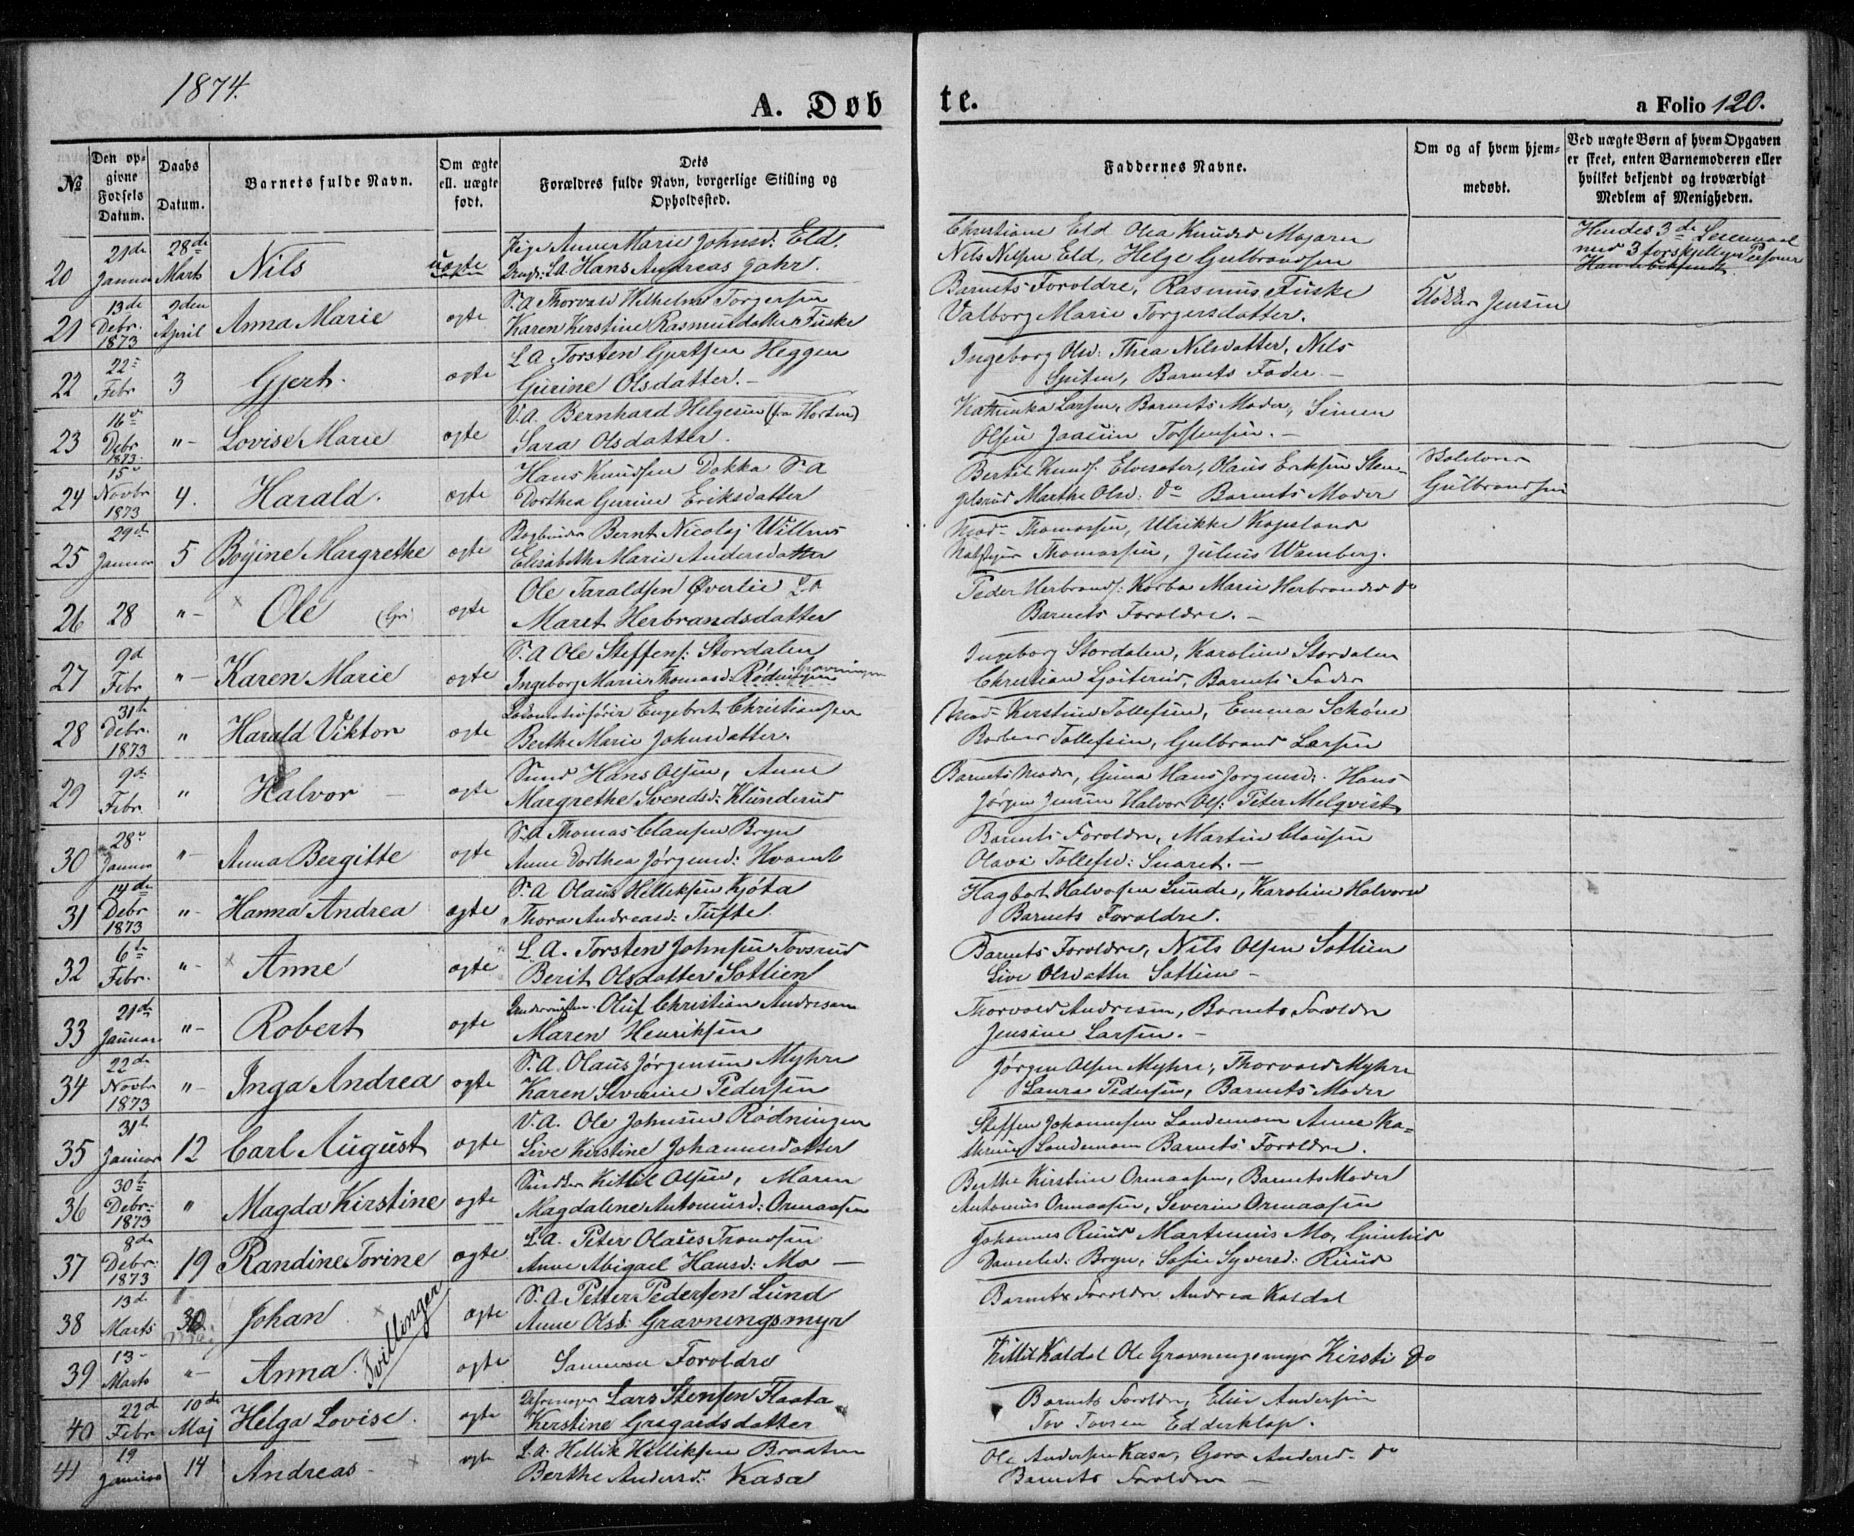 1874.
A. Døb
te.
a Folio 120.
№
Den opgivne Fødsels Datum.
Daabs Datum.
Barnets fulde Navn.
Om ægte ell. uægte født.
Dets Forældres fulde Navn, borgerlige Stilling og Opholdssted.
Faddernes Navne.
Om og af hvem hjemmedøbt.
Ved uægte Børn af hvem Opgaven er skeet, enten Barnemoderen eller hvilket bekjendt og troværdigt Medlem af Menigheden.
20 21de Januar 28de Marts Nils uægte
Pige Anne Marie Johnsd: Eld.
Ungk. L.A. Hans Andreas Gohr.
Christiane Eld Olea Knudsd
Nils Nilsen Eld, Helge Gulbrandsen
Hendes 3de Leiermaal
med 3 forskjellige Personer
21 13de Debr. 1873 2den April Anna Marie ægte
S.A Thorvald Vilhelm Torgersen
Karen Kirstine Rasmusdatter Fuske
Barnets Foreldre, Rasmus Fuske
Valborg Marie Torgersdatter.
Klokker Jensen
22 22 Febr 3 Gjert. ægte
L A Torsten Gjertsen Heggen
Gurine Olsdatter. -
Ingeborg Olsd: Thea Nilsdatter, Nils
Barnets Fader -
23 16de Debr 1873 "- Lovise Marie ægte
V.A. Bernhard Helgesen (fra Horten)
Sara Olsdatter.
Larsen, Barnets Moder, Simen
Olsen Torstensen. -
24 15 Novbr 1873 4. Harald. ægte
Hans Knudsen Dokka S A
Dorthea Gurine Eriksdatter
Bertil Knuds: Elvesæter, Olaus Eriksen Sten-
gelsrud Marthe Olsd: do Barnets Moder
Gulbrandsen
25 29de Januar 5 Boyine Margrethe ægte
Bogbinder Bernt Nicolaj Willms
Elisabeth Marie Andersdatter
Mad- Thomassen, Ulrikke Kopsland
Thomassen, Julius Wamberg.
26 28 "- Ole ægte
Ole Taraldsen Øverlie L A
Maret Herbrandsdatter
Peder Herbrands: Korbø Marie Herbrandsd do
Barnets Foreldre. -
27 9d Febr "- Karen Marie ægte
S. A Ole Steffens: Stordalen
Ingeborg Marie Thomasd: Rødningen
Ingeborg Stordalen, Karoline Stordalen
Christian Barnets Fader
28 31te Debr. 1873 " Harald Viktor ægte
Lokomotivfører Engebret Christiansen
Berthe Marie Johnsdatter.
Mad- Kirstine Tollefsen, Emma Schøne
Tollefsen, Gulbrand Larsen
29 9de Febr " Halvor - ægte
Smed Hans Olsen, Anne
Margrethe Svendsd: Klunderud
Barnets Moder, Hans Jørgensd: Hans
Jørgen Jensen Halvor Ols: Peter Melqvist
30 28 Januar "- Anna Bergitte ægte
S. A Thomas Clausen Bryn
Anne Dorthea Jørgensd: Hvamb
Barnets Foreldre, Martin Clausen
Olava Tollefsd: -
31 14de Debr 1873 "- Hanna Andrea ægte
S. A Olaus Helliksen Kjøta
Thora Andreasd: Tufte
Hagbart Halvorsen Lunde, Karoline Halvorsd
Barnets Foreldre.
32 6te Febr. "- Anne ægte
L. A. Torsten Johnsen Tovsrud
Berit Olsdatter Søtlien
Barnets Foreldre, Nils Olsen Søtlien
Live Olsdatter Søtlien -
33 21de Januar "- Robert ægte
Oluf Christian Andresen
Maren Henriksen
Thorvald Andresen, Barnets Foreldre
Jensine Larsen. -
34 22de Novbr 1873 "- Inga Andrea ægte
S. A. Olaus Jørgensen Myhre
Karen Severine Pedersen
Jørgen Olsen Myhre, Thorvald Myhre
Laura Pedersen, Barnets Moder
35 31te Januar 12 Carl August ægte
V. A. Ole Johnsen Rødningen
Live Kirstine Johannesdatter
Steffen Johannesen Landemoen Anne Ka=
thrine Landemoen Barnets Foreldre.
36 30te Debr. 1873 " Magda Kirstine ægte
Kittil Olsen, Maren
Magdalene Antoniusd: Ormaasen
Berthe Kirstine Ormaasen, Barnets Moder
Antonius Ormaasen, Severin Ormaasen
37 8de Debr. 1873 19 Randine Torine ægte
L. A. Peter Olaves Trondsen
Anne Abigael Hansd: Mo -
Johannes Ruud Martinius Mo, Gunhild
Danielsd: Bryn, Sofie Syversd: Ruud
38 13de Marts 30 Johan ægte
Tvillinger
S. A Petter Pedersen Lund
Anne Olsd: Gravningsmyr
Barnets Foreldre Andrea Kaldal
39 13- Marts "- Anna. ægte
Samme Foreldre
Kittil Kaldal Ole Gravningsmyr Kirsti do
40 22d Febr 10de Maj Helga Lovise. ægte
Lars Stensen Flaata
Kirstine Gregardsdatter
Barnets Foreldre, Elise Andersen
Tov Tovsen Edderklop.
41 19 Januar 14 Andreas ægte
L. A. Hellik Helliksen Braaten
Berthe Andersd: Kasa
Ole Andersen Kasa, Goro Andersd- do
Barnets Foreldre -